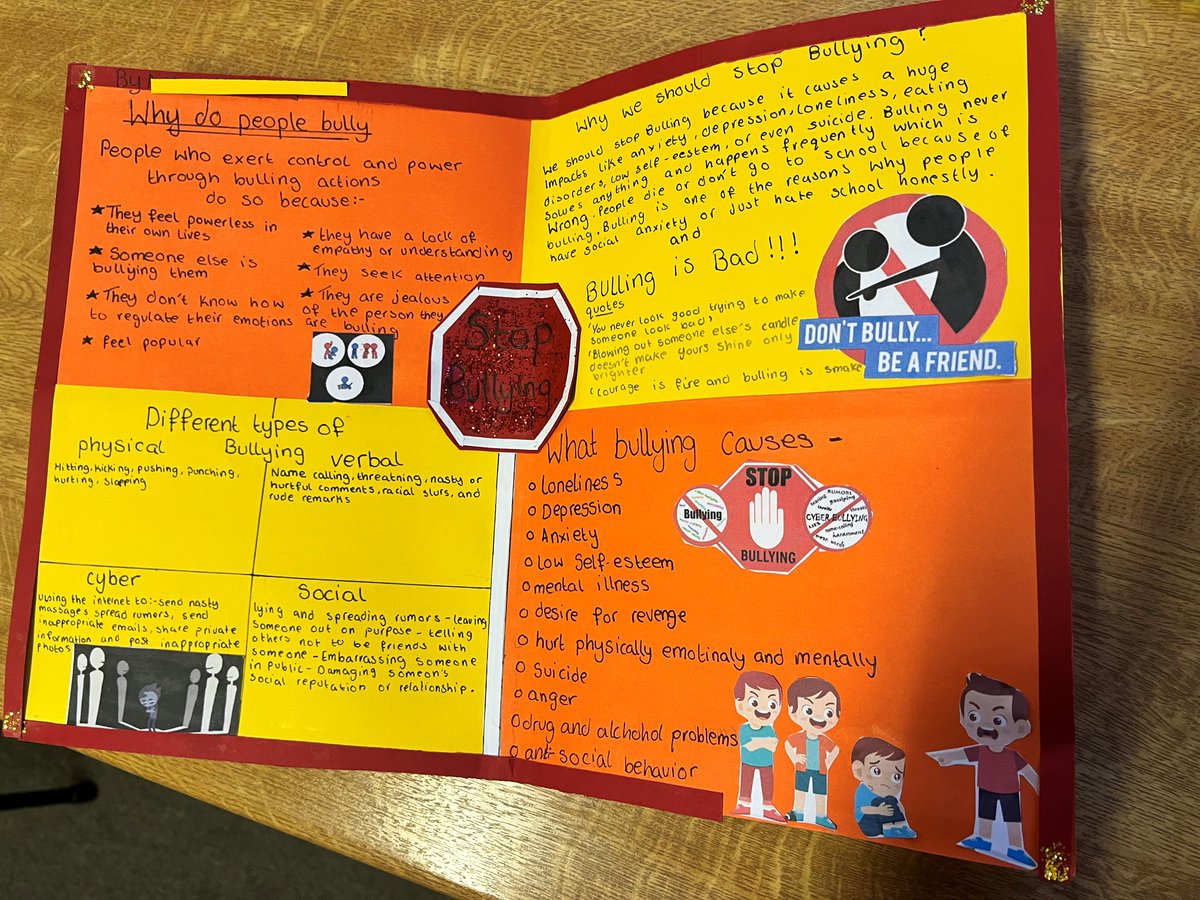 By
Why do people bully
People who exert control and power
through bulling actions
do so because:-
★ They feel powerless in
their own lives
★ Someone else is
bullying them
★ They don't know how
to regulate their emotions
★ feel popular
★ they have a lack of
empathy or understanding
★ They seek attention
★ They are jealous
of the person they
are bulling
Stop
Bullying
Why we should stop Bullying?
We should stop Bulling because it causes a huge
impacts like anxiety, depression, loneliness, eating
disorders, low self-eestem, or even suicide. Bulling never
solves anything and happens frequently which is
wrong. People die or don't go to school because of
bulling. Bulling is one of the reasons why people
have social anxiety or just hate school honestly.
and
Bulling is Bad!!!
quotes
'You never look good trying to make
someone look bad'
'Blowing out someone else's candle
doesn't make yours shine only
brighter
'Courage is fire and bulling is smoke
DON'T BULLY...
BE A FRIEND.
Different types of
Bullying
physical
Hitting, kicking, pushing, punching,
hurting, slapping
verbal
Name calling, threatning, nasty or
hurtful comments, racial slurs, and
rude remarks
cyber
Using the internet to:- send nasty
massages spread rumers, send
inappropriate emails, share private
information and post inappropriate
photos
Social
lying and spreading rumors - leaving
someone out on purpose - telling
others not to be friends with
someone - Embarrassing someone
in public - Damaging someon's
social reputation or relationship.
What bullying causes -
o loneliness
o Depression
o Anxiety
o low self-esteem
o mental illness
o desire for revenge
o hurt physically emotinaly and mentally
o suicide
o anger
o drug and alchohol problems
o anti-social behavior
Bullying
STOP
BULLYING
RUMORS
gossiping
CYBER BULLYING
name-calling
harassment
mean words